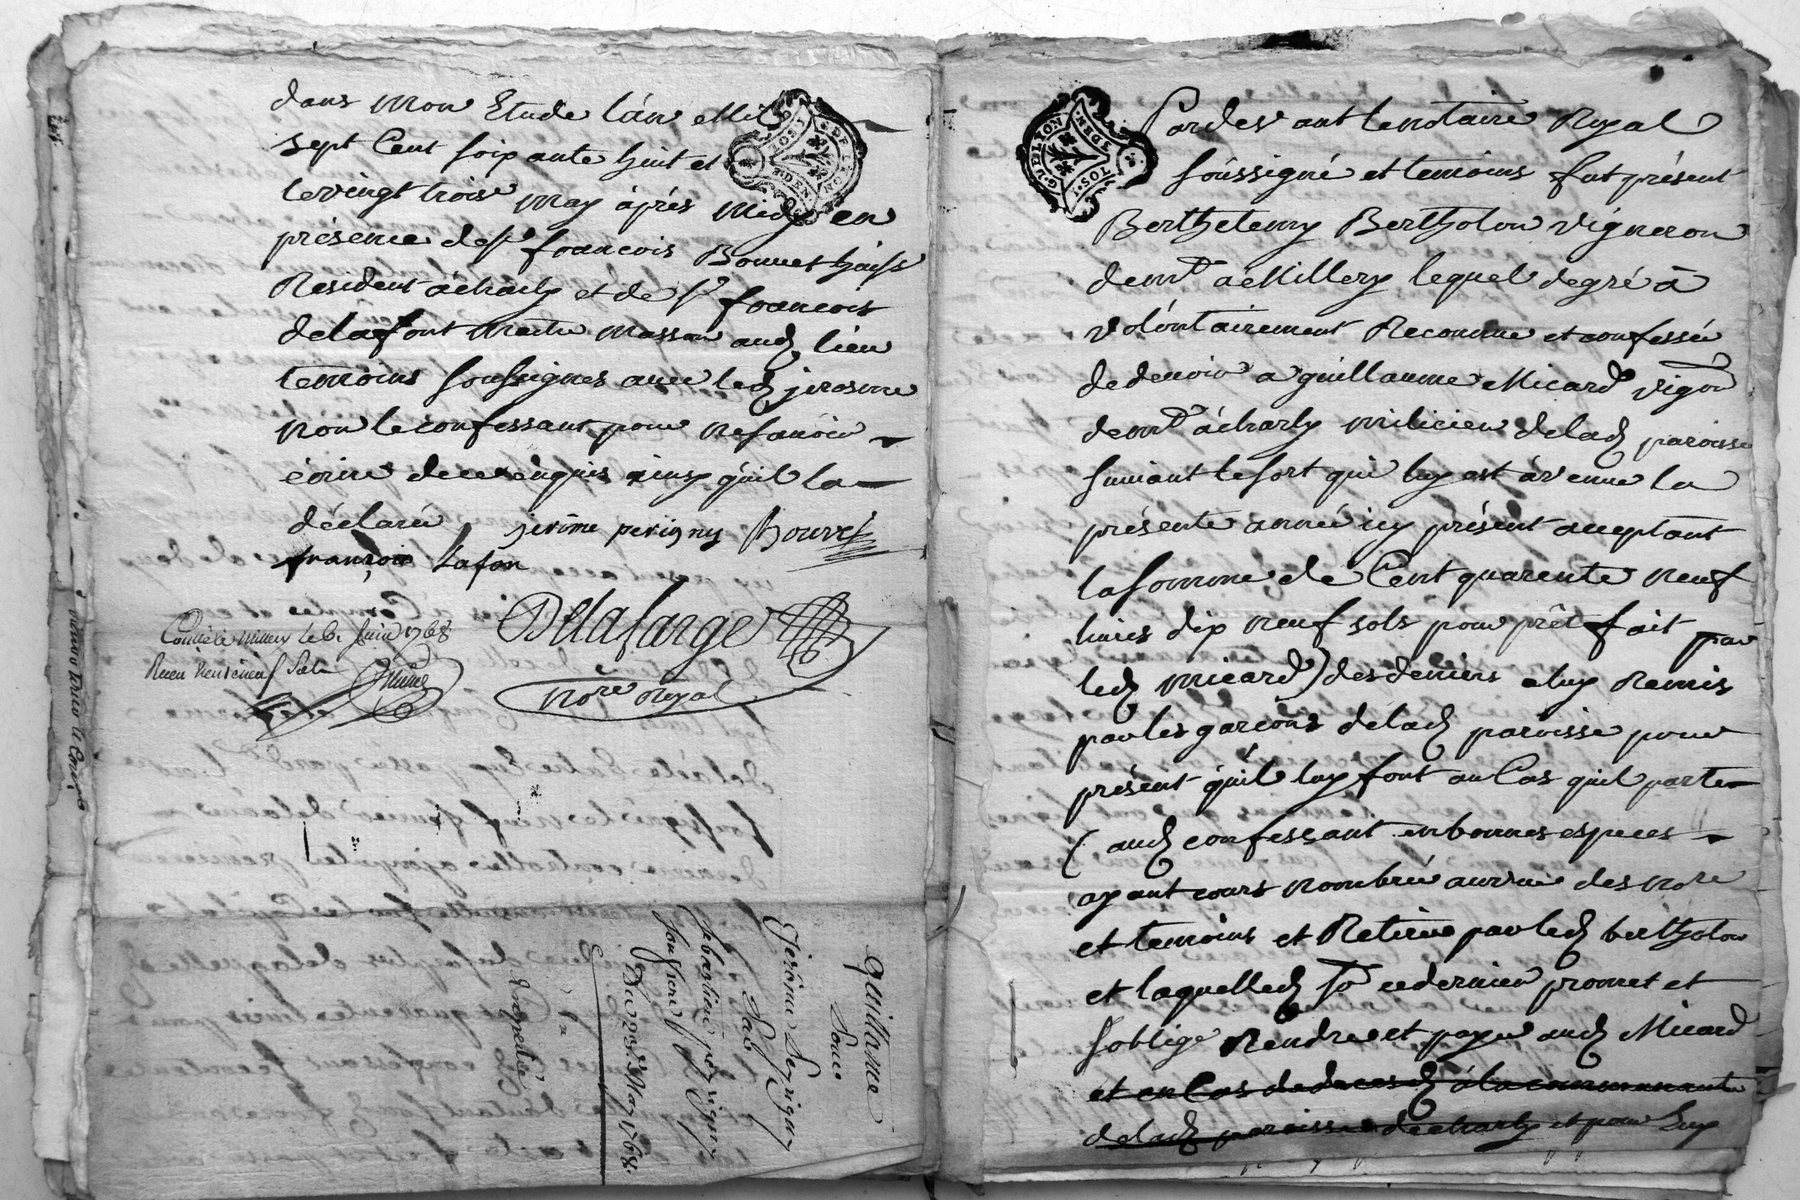 dans mon Etude l'an mil
sept Cent soixante huit et
le vingt trois may áprés midy en
présence de sr francois Bonnet
Resident á charly et de sr francois
delafont maitre masson aud lieu
temoins soussignes avec led jerosme
non le confessant pour ne savoir
écrire de ce enquis ainsy qu'il la
déclaré jerôme perigny Bonnet
françois Lafon
Delafarge
nore royal
Contlé à millery le 6. Juin 1768
Recu
quittance
Sous
Jerôme
Sebastien perigny
Du 23e. May 1768.
Expediée
GN. DE LYON
Pardevant le notaire Royal
soussigné et temoins fut présent
Berthelemy Bertholon vigneron
demt á Millery lequel de gré á
volontairement Reconnu et confessé
de devoir a guillaume Micard vigon
demt á charly milicien de lad paroisse
suivant le sort qui luy est ávenu la
présente année icy présent acceptant
la somme de Cent quarente neuf
livres dix neuf sols pour prêt fait par
led micard des deniers a luy Remis
par les garcons de lad paroisse pour
présent qu'il luy font au Cas quil parte
aud confessant en bonnes especes
ayant cours nombrée au vue des nore
et temoins et Retirée par led bertholon
et laquelle d so ce dernier promet et
s'oblige Rendre et payer aud Micard
et en Cas de deces d á la communauté
de lad paroisse de charly et pour Luy